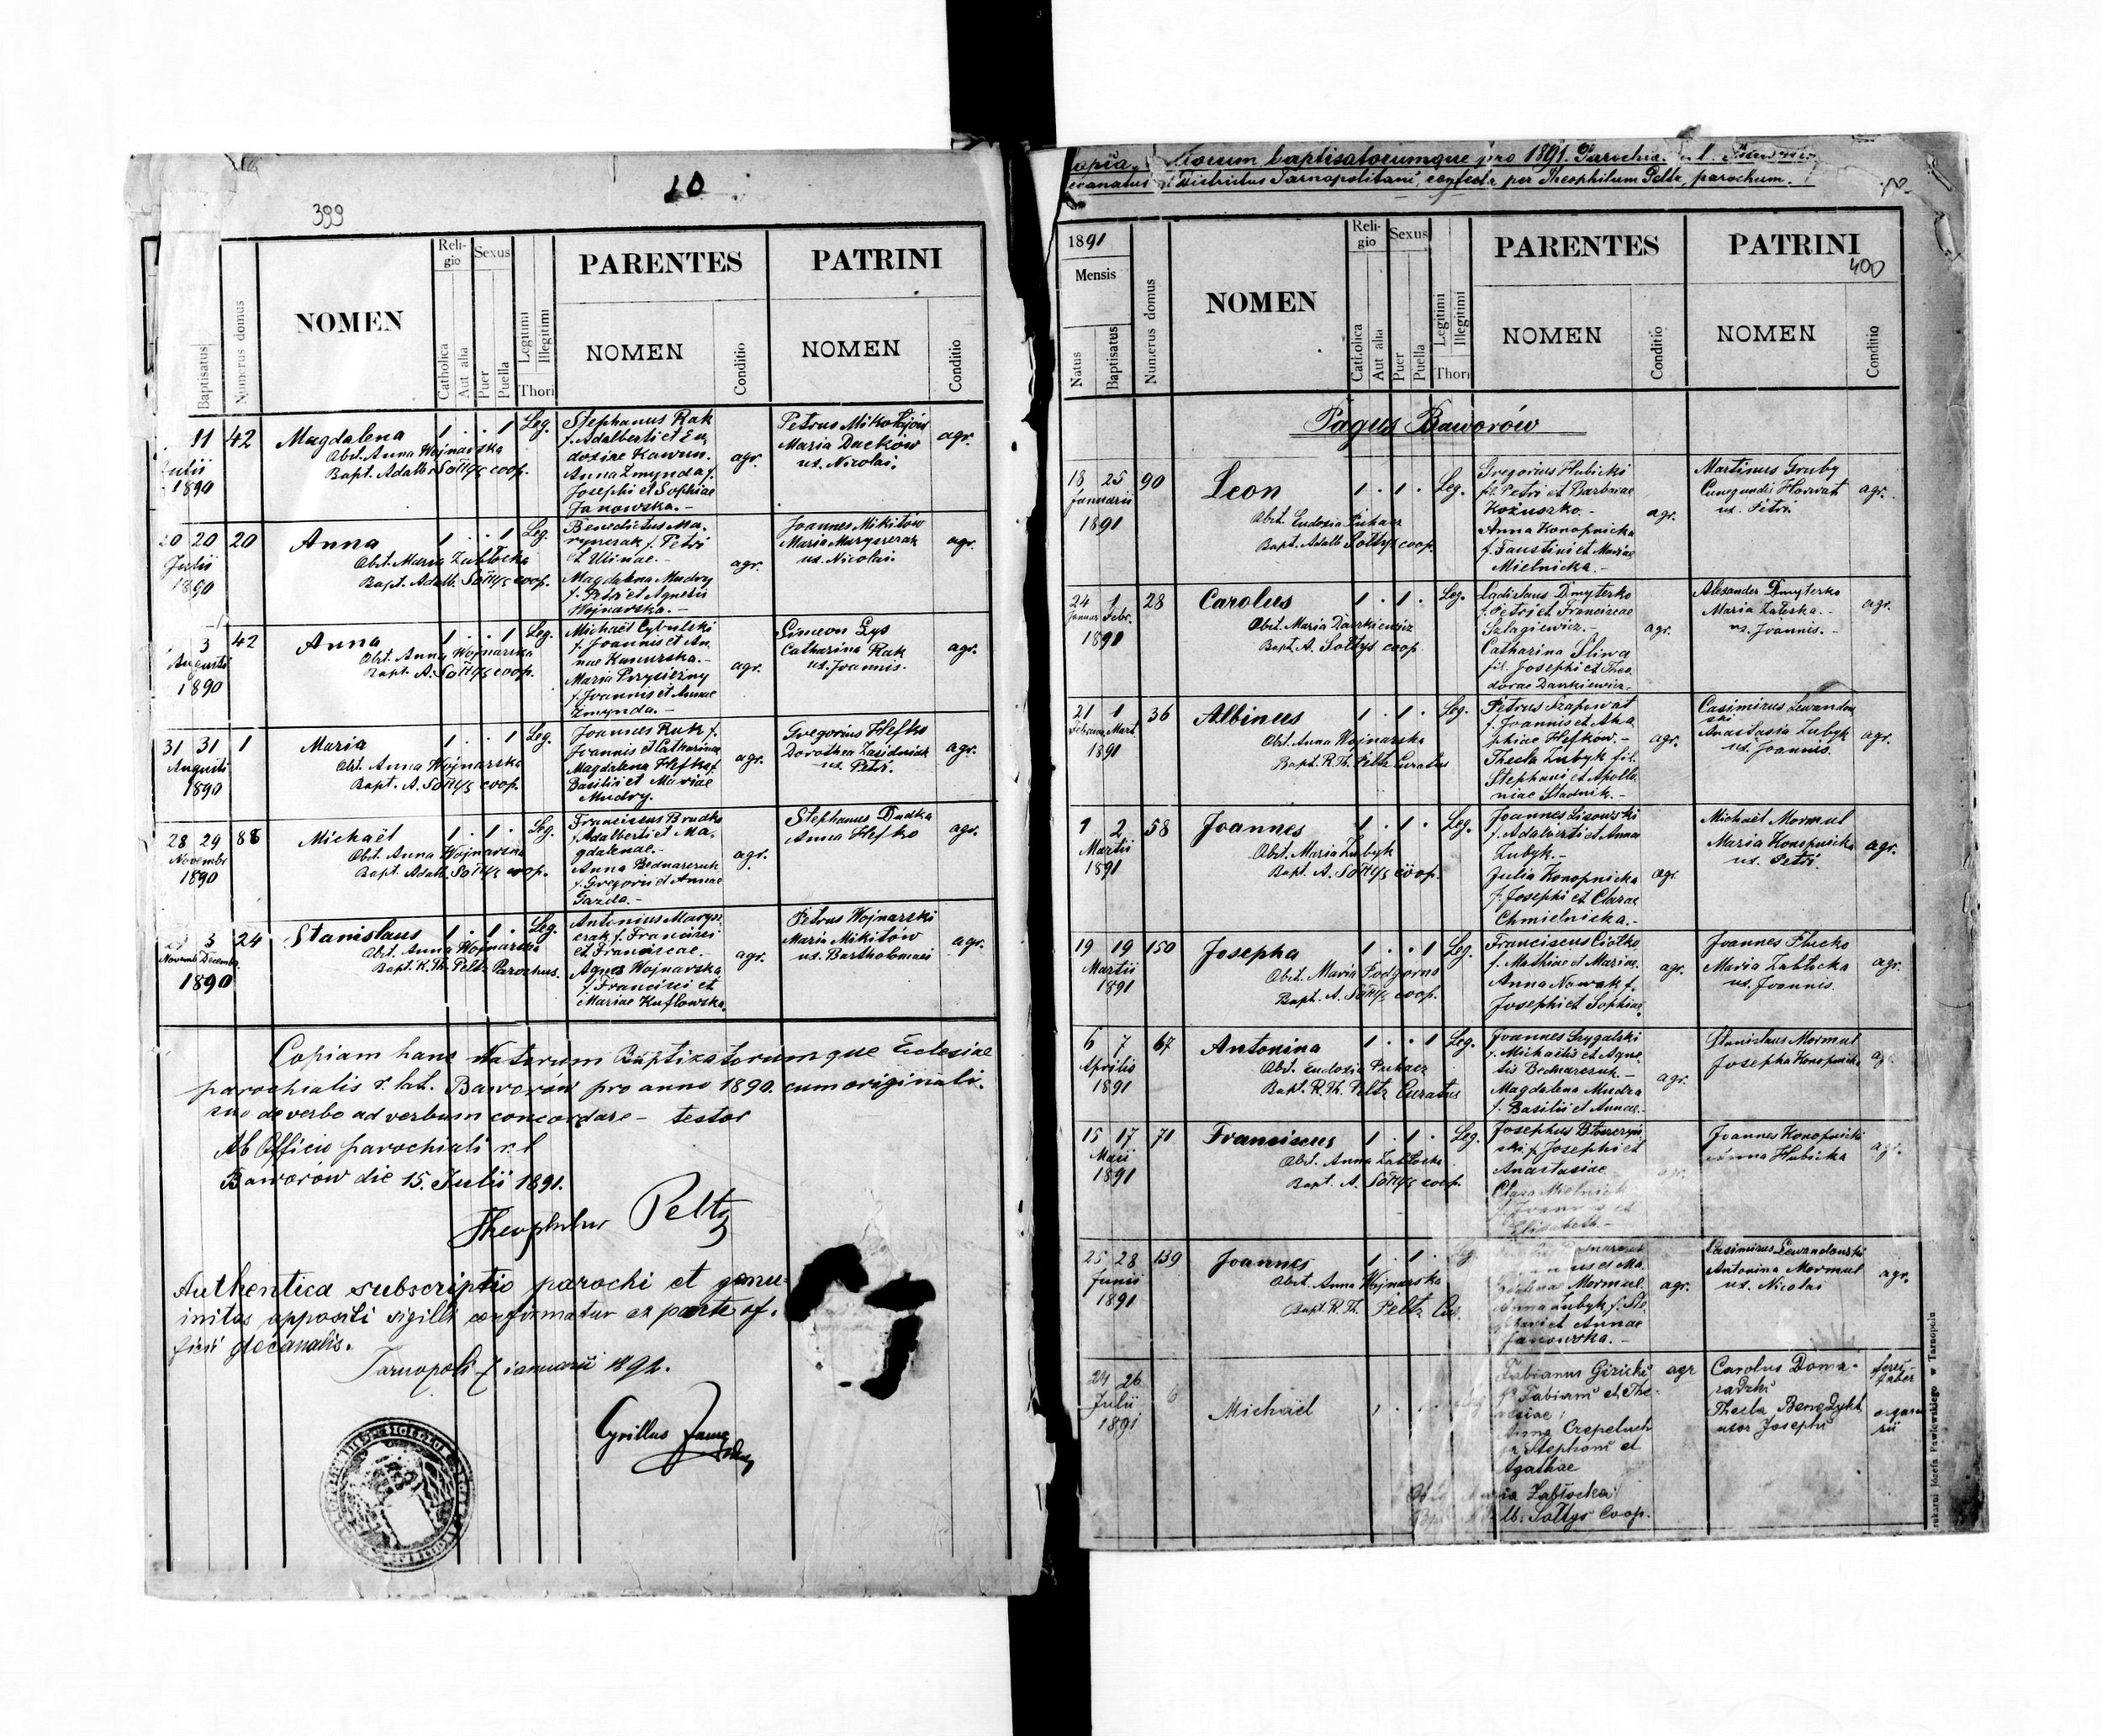 10
399
Baptisatus
Numerus domus
NOMEN
Reli-
gio
Catholica
Aut alia
Sexus
Puer
Puella
Legitimi
Illegitimi
Thori
PARENTES
NOMEN
Conditio
PATRINI
NOMEN
Conditio
11 42
Julii
1890
Magdalena
Obst. Anna Wojnarska
Bapt. Adalb. Sołtys coop.
1 . . 1 Leg.
Stephanus Rak
f. Adalberti et Eu
dosiae Kawun.
Anna Zmynda f.
Josephi et Sophiae
Janowska.-
agr.
Petrus Mikołijów
Maria Dacków
ux. Nicolai.
agr.
20 20 20
Julii
1890
Anna
Obst. Maria Zabłocka
Bapt. Adalb. Sołtys coop.
1 . . 1 Leg.
Benedictus Ma.
rynczak f. Petri
Magdalena Mudry
f. Petri et Agnetis
Wojnarska.-
agr.
Joannes Mikitów
Maria
ux. Nicolai.
agr.
3 42
Augusti
1890
Anna
Obst. Anna Wojnarska
Bapt. A. Sołtys coop.
1 . . 1 Leg.
Michaël Cybulski
f. Joannis et An
nae
Maria Przysiezny
f. Joannis et Annae
Zmynda.-
agr.
Simeon Lys
Catharina Rak
ux. Joannis.
agr.
31 31 1
Augusti
1890
Maria
Obst. Anna Wojnarska
Bapt. A. Sołtys coop.
1 . . 1 Leg.
Joannes Rak f.
Joannis et Catharinae
Magdalena Hefko f.
Basilii et Mariae
Mudry.
agr.
Gregorius Hefko
Dorothea Zasidniak
ux. Petri.
agr.
28 29 88
Novembr
1890
Michaël
Obst. Anna Wojnarska
Bapt. Adalb. Sołtys coop.
1 . 1 . Leg.
Franciscus Brudko
f. Adalberti et Ma.
gdalenae.-
Anna Bednarczuk
f. Gregorii et Annae
Gazda.-
agr.
Stephanus Dudka
Anna Hefko
agr.
3 24
Novemb. Decemb.
1890
Stanislaus
Obst. Anna Wojnarska
Bapt. R. Th. Peltz Parochus.
1 . 1 . Leg.
Antonius Marysz
czak f. Francisci
et Franciscae.
Agnes Wojnarska
f. Francisci et
Mariae Kuflowska.
agr.
Petrus Wojnarski
Maria Mikitów
ux. Bartholomaei
agr.
Copiam hanc Natorum Baptizatorumque Eclesiae
parochialis r. lat. Baworów pro anno 1890. cum originali.
suo de verbo ad verbum concordare - testor
Ab Officio parochiali r. l
Baworów die 15. Julii 1891.
Theophilus Peltz
Authentica subscriptio parochi et genu-
initas appositi sigilli confirmatur ex parte of.
ficii decanalis.
Tarnopoli 7 ianuarii 1892.
Cyrillus
opia natorum baptisatorumque pro 1891. Parochia
ecanatus et Districtus Tarnopolitani, confecta per Theophilum Peltz, parochum.
400
1891
Mensis
Natus
Baptisatus
Numerus domus
NOMEN
Reli-
gio
Catholica
Aut alia
Sexus
Puer
Puella
Legitimi
Illegitimi
Thori
PARENTES
NOMEN
Conditio
PATRINI
NOMEN
Conditio
Pagus Baworów
18 25 90
Januarii
1891
Leon
Obst. Eudosia Puhacz
Bapt. Adalb Sołtys coop.
1 . 1 . Leg.
Gregorius Hubicki
fil. Petri et Barbarae
Kożuszko.-
Anna Konopnicka
f. Faustini et Mariae
Mielnicka.-
agr.
Martinus Gruby
Cunegundis Horwat
ux. Petri.
agr.
24 1 28
Januar Febr.
1891
Carolus
Obst. Maria Daszkiewicz
Bapt. A. Sołtys coop
1 . 1 . Leg.
Ladislaus Dmyterko
f. Petri et Franciscae
Szlagiewicz.-
Catharina Sliwa
fil. Josephi et Theo
dorae Daszkiewicz.
agr.
Alexander Dmyterko
Maria Zaleska.-
ux. Joannis.-
agr.
21 1 36
Februar Mart.
1891
Albinus
Obst. Anna Wojnarska
Bapt. R. Th. Peltz Curatus
1 . 1 . Leg.
Petrus Szapowat
f. Joannis et Aga
phiae Hefkow.-
Thecla Zubyk fil.
Stephani et Apollo
niae Stadnik.-
agr.
Casimirus Lewandow
ski
Anastasia Zubyk
ux. Joannis.
agr.
1 2 58
Martii
1891
Joannes
Obst. Maria Zubyk
Bapt. A. Sołtys coop.
1 . 1 . Leg.
Joannes Lisowski
f. Adalberti et Annae
Zubyk.-
Julia Konopnicka
f. Josephi et Clarae
Chmielnicka.-
agr.
Michaël Mormul
Maria Konopnicka
ux. Petri.
agr.
19 19 150
Martii
1891
Josepha
Obst. Maria Podgorna
Bapt. A. Sołtys coop.
1 . . 1 Leg.
Franciscus Ciotko
f. Mathiae et Mariae.
Anna Nowak f.
Josephi et Sophiae
agr.
Joannes Hucko
Maria Zabłocka
ux. Joannis.
agr.
6 7 67
Aprilis
1891
Antonina
Obst. Eudosia Puhacz
Bapt. R. Th. Peltz Curatus
1 . . 1 Leg.
Joannes Lygalski
f. Michaëlis et Agne
tis Bednarczuk.-
Magdalena Mudra
f. Basilii et Annae.-
agr.
Stanislaus Mormul
Josepha Konopnicka
15 17 71
Maii
1891
Franciscus
Obst. Anna Zabłocka
Bapt. A. Sołtys coop.
1 . 1 . Leg.
Josephus Błaszczyń
ski f. Josephi et
Anastasiae
Clara Mielnick
Elisabeth.-
Joannes Konopnicki
Anna Hubicka
agr.
25 28 139
Junii
1891
Joannes
Obst. Anna Wojnarska
Bapt. R. Th. Peltz Cur.
1 . 1 .
Mormul.
Anna Zubyk f. Ste.
phani et Annae
Janowska.-
agr.
Casimirus Lewandowski
Antonina Mormul
ux. Nicolai
agr.
24 26 6
Julii
1891
Michaël
Fabianus Gizicki
f. Fabiani et The-
resiae;
Anna Czepeluch
f. Stephani et
Agathae
agr
Carolus Doma-
radzki
Thecla Benedykt
uxor Josephi
ferri-
faber
organa
rii
Obst. Maria Zabłocka
Bapt. Adalb. Sołtys Coop.
drukarni Józefa Pawłowskiego w Tarnopolu